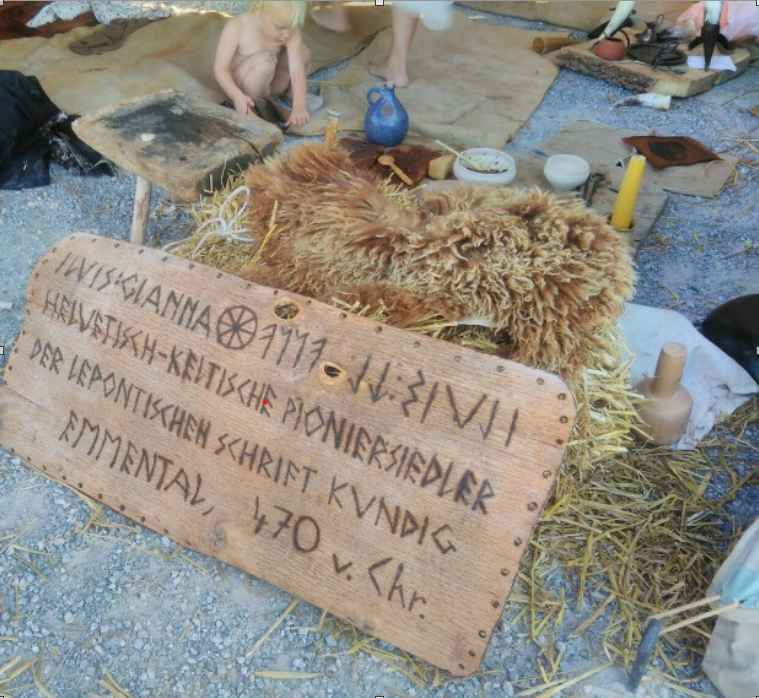 ILVIS:GIANNA
HELVETISCH-KELTISCHE PIONIERSIEDLER
DER LEPONTISCHEN SCHRIFT KUNDIG
EMMENTAL, 470 v. Chr.